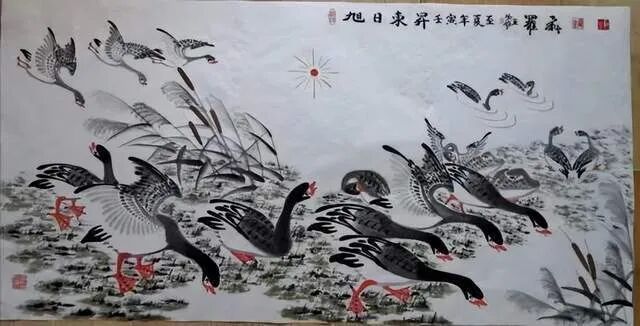 旭日東昇 壬寅年夏至 羅